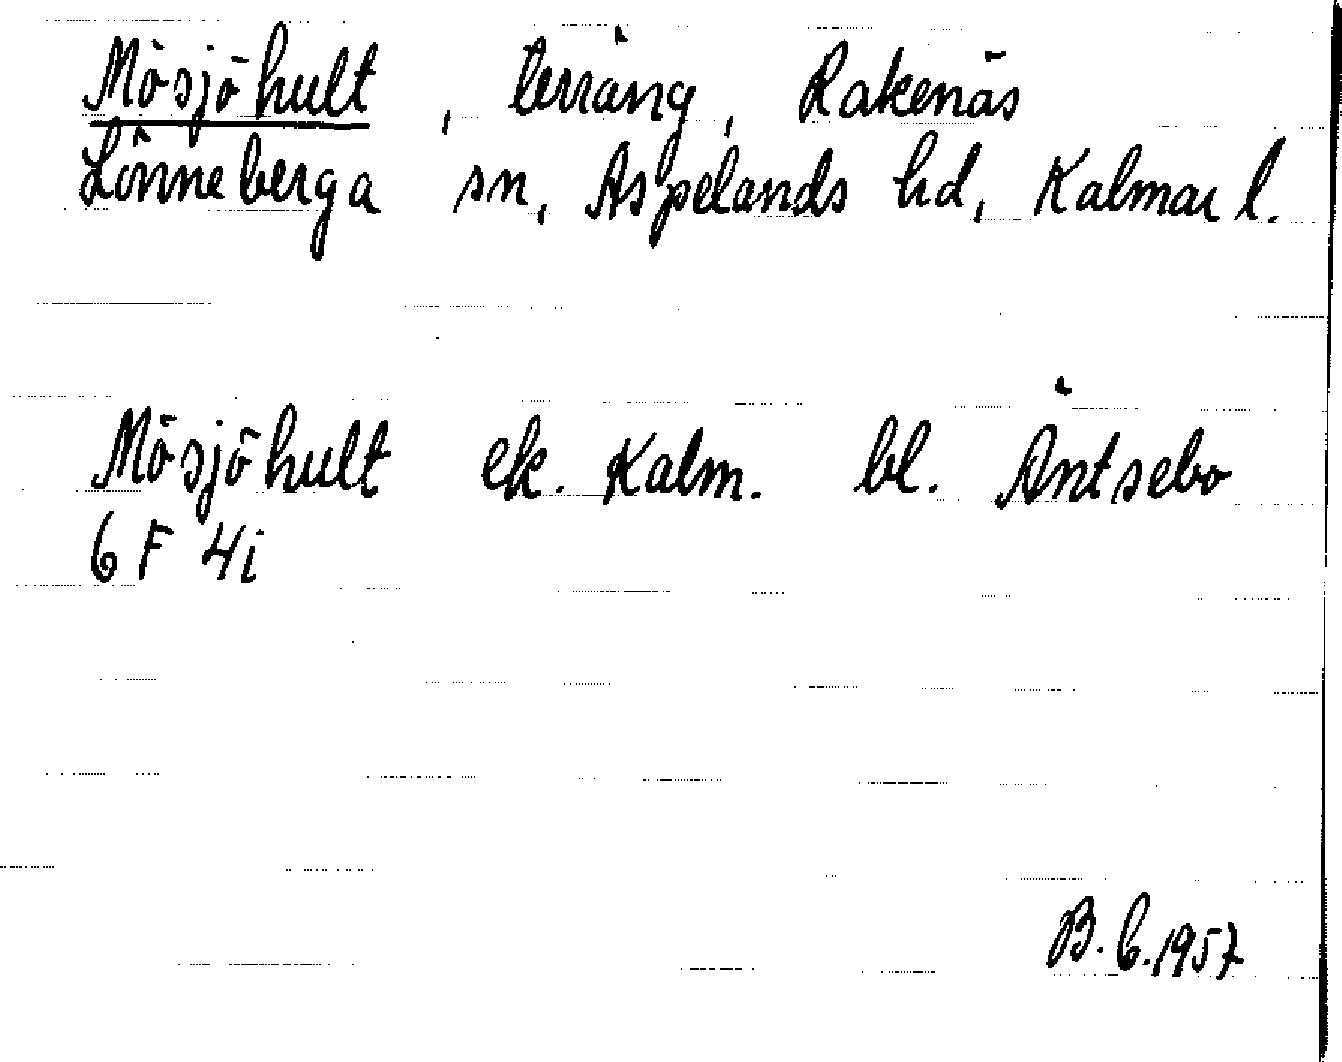 Mösjöhult, terräng, Rakenäs
Lönneberga sn, Aspelands hd, Kalmar l.
Mösjöhult ek. Kalm. bl. Äntsebo
6 F 4i
B. C. 1957